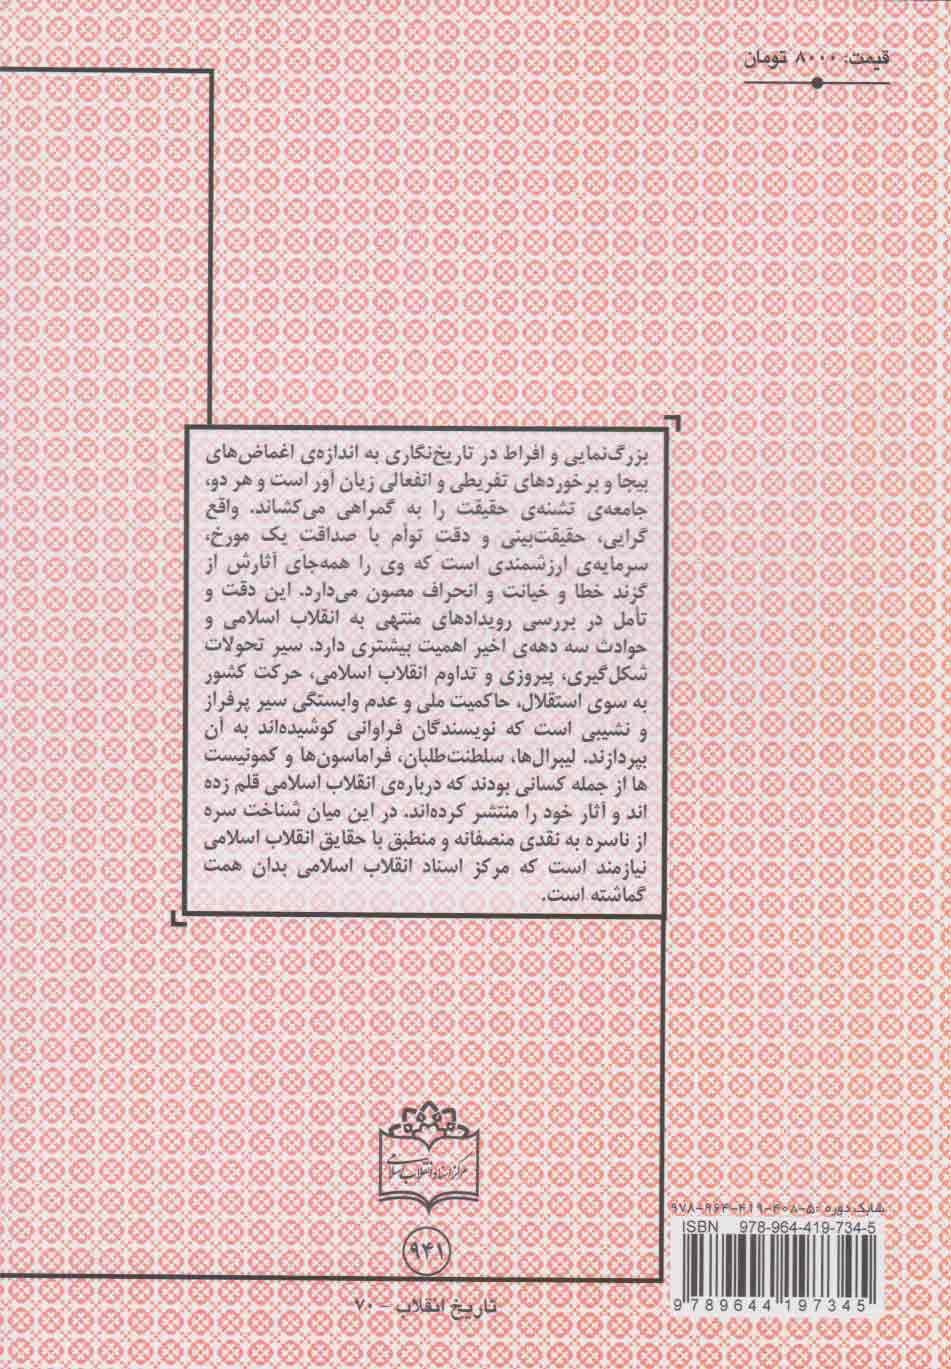 قیمت: ۸۰۰۰ تومان
بزرگ‌نمایی و افراط در تاریخ‌نگاری به اندازه‌ی اغماض‌های
بیجا و برخوردهای تفریطی و انفعالی زیان آور است و هر دو،
جامعه‌ی تشنه‌ی حقیقت را به گمراهی می‌کشاند. واقع
گرایی، حقیقت‌بینی و دقت توأم با صداقت یک مورخ،
سرمایه‌ی ارزشمندی است که وی را همه‌جای آثارش از
گزند خطا و خیانت و انحراف مصون می‌دارد. این دقت و
تأمل در بررسی رویدادهای منتهی به انقلاب اسلامی و
حوادث سه دهه‌ی اخیر اهمیت بیشتری دارد. سیر تحولات
شکل‌گیری، پیروزی و تداوم انقلاب اسلامی، حرکت کشور
به سوی استقلال، حاکمیت ملی و عدم وابستگی سیر پرفراز
و نشیبی است که نویسندگان فراوانی کوشیده‌اند به آن
بپردازند. لیبرال‌ها، سلطنت‌طلبان، فراماسون‌ها و کمونیست
ها از جمله کسانی بودند که درباره‌ی انقلاب اسلامی قلم زده
اند و آثار خود را منتشر کرده‌اند. در این میان شناخت سره
از ناسره به نقدی منصفانه و منطبق با حقایق انقلاب اسلامی
نیازمند است که مرکز اسناد انقلاب اسلامی بدان همت
گماشته است.
مرکز اسناد انقلاب اسلامی
۹۴۱
تاریخ انقلاب - ۷۰
شابک دوره :۵-۴۰۸-۴۱۹-۹۶۴-۹۷۸
ISBN 978-964-419-734-5
9 789644 197345